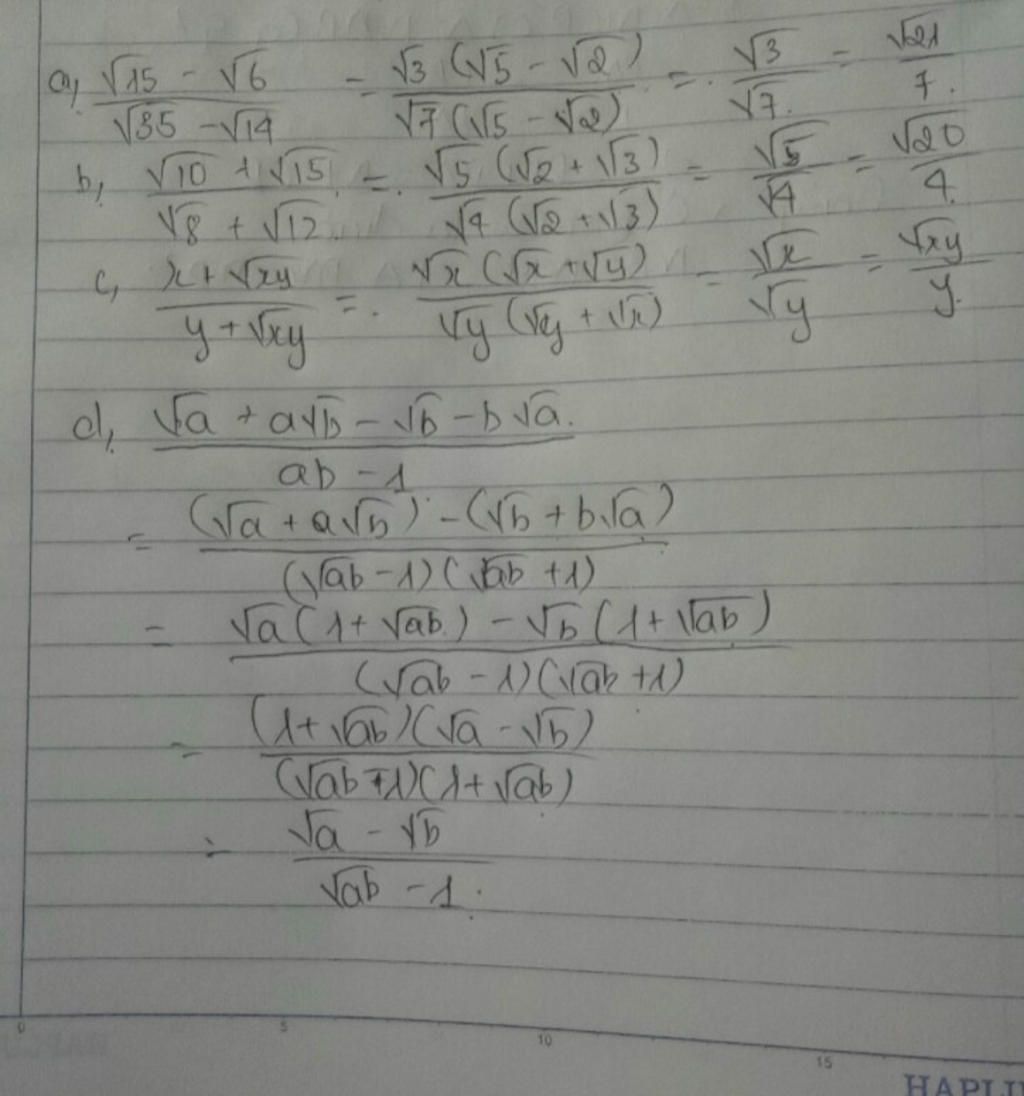 a, (√15 - √6)/(√35 - √14) = √3 (√5 - √2)/√7 (√5 - √2) = √3/√7 = √21/7.
b, (√10 + √15)/(√8 + √12) = √5 (√2 + √3)/√4 (√2 + √3) = √5/√4 = √20/4
c, (x + √xy)/(y + √xy) = √x (√x + √y)/√y (√y + √x) = √x/√y = √xy/y.
d, (√a + a√b - √b - b√a)/(ab - 1)
= ((√a + a√b) - (√b + b√a))/((√ab - 1)(√ab + 1))
= (√a (1 + √ab) - √b (1 + √ab))/((√ab - 1)(√ab + 1))
= ((1 + √ab)(√a - √b))/((√ab - 1)(1 + √ab))
= (√a - √b)/(√ab - 1).
0 5 10 15